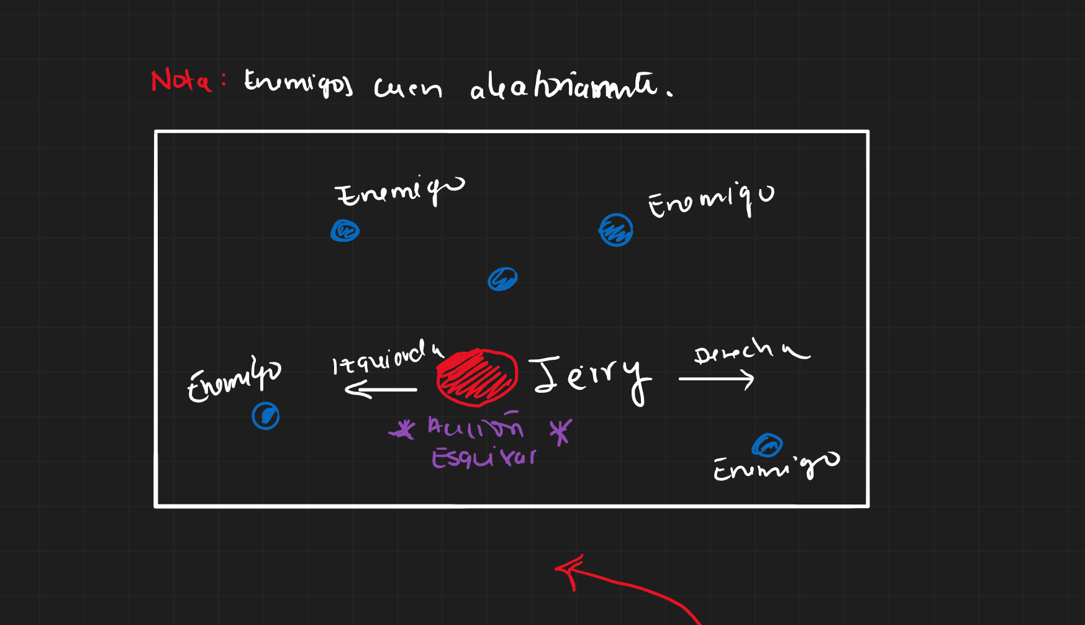 Nota: Enemigos caen aleatoriamente.
Enemigo
Enemigo
Izquierda
Jerry
Derecha
Enemigo
* Acción *
Esquivar
Enemigo